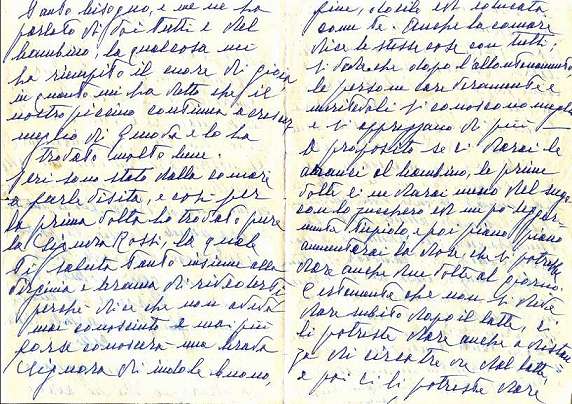 tanto bisogno, e me ne ha
parlato di voi tutti e del
bambino; la qualcosa mi
ha riempito il cuore di gioia
in quanto mi ha detto che il
nostro piccino continua a crescere
meglio di prima e lo ha
trovato molto bene.
Ieri sono stato dalla comare
a farle visita, e così per
la prima volta ho trovato pure
la Signora Rossi, la quale
ti saluta tanto insieme alla
Virginia e brama di rivederti
perché dice che non aveva
mai conosciuto e mai più
forse conoscerà una brava
Signora di indole buona,
fine, docile ed educata
come te. Anche la comare
dice le stesse cose con tutti;
si vede che dopo l'allontanamento
le persone care veramente e
meritevoli si conoscono meglio
e si apprezzano di più —
A proposito se ci darai le
aranci al bambino, le prime
volte ci ne darai meno del sugo
con lo zucchero ed un po'
tiepido e poi piano piano
aumenterai la dose, che ci potresti
dare anche due volte al giorno.
Certamente che non si deve
dare subito dopo il latte, ci
li potreste dare anche a distan
za di circa tre ore dal latte
e poi ci li potreste dare